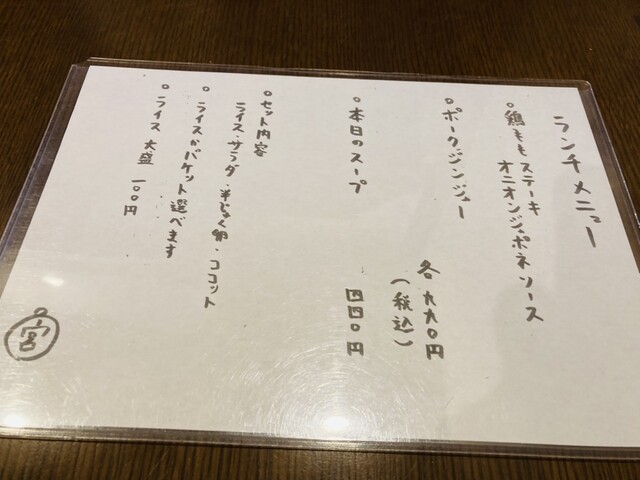 ランチメニュー
○鶏ももステーキ
オニオンジャポネソース
○ポークジンジャー
各九九〇円
(税込)
○本日のスープ
四四〇円
○セット内容
ライス・サラダ・半じゅく卵・ココット
○ライスかバケット選べます
○ライス 大盛 一〇〇円
宮